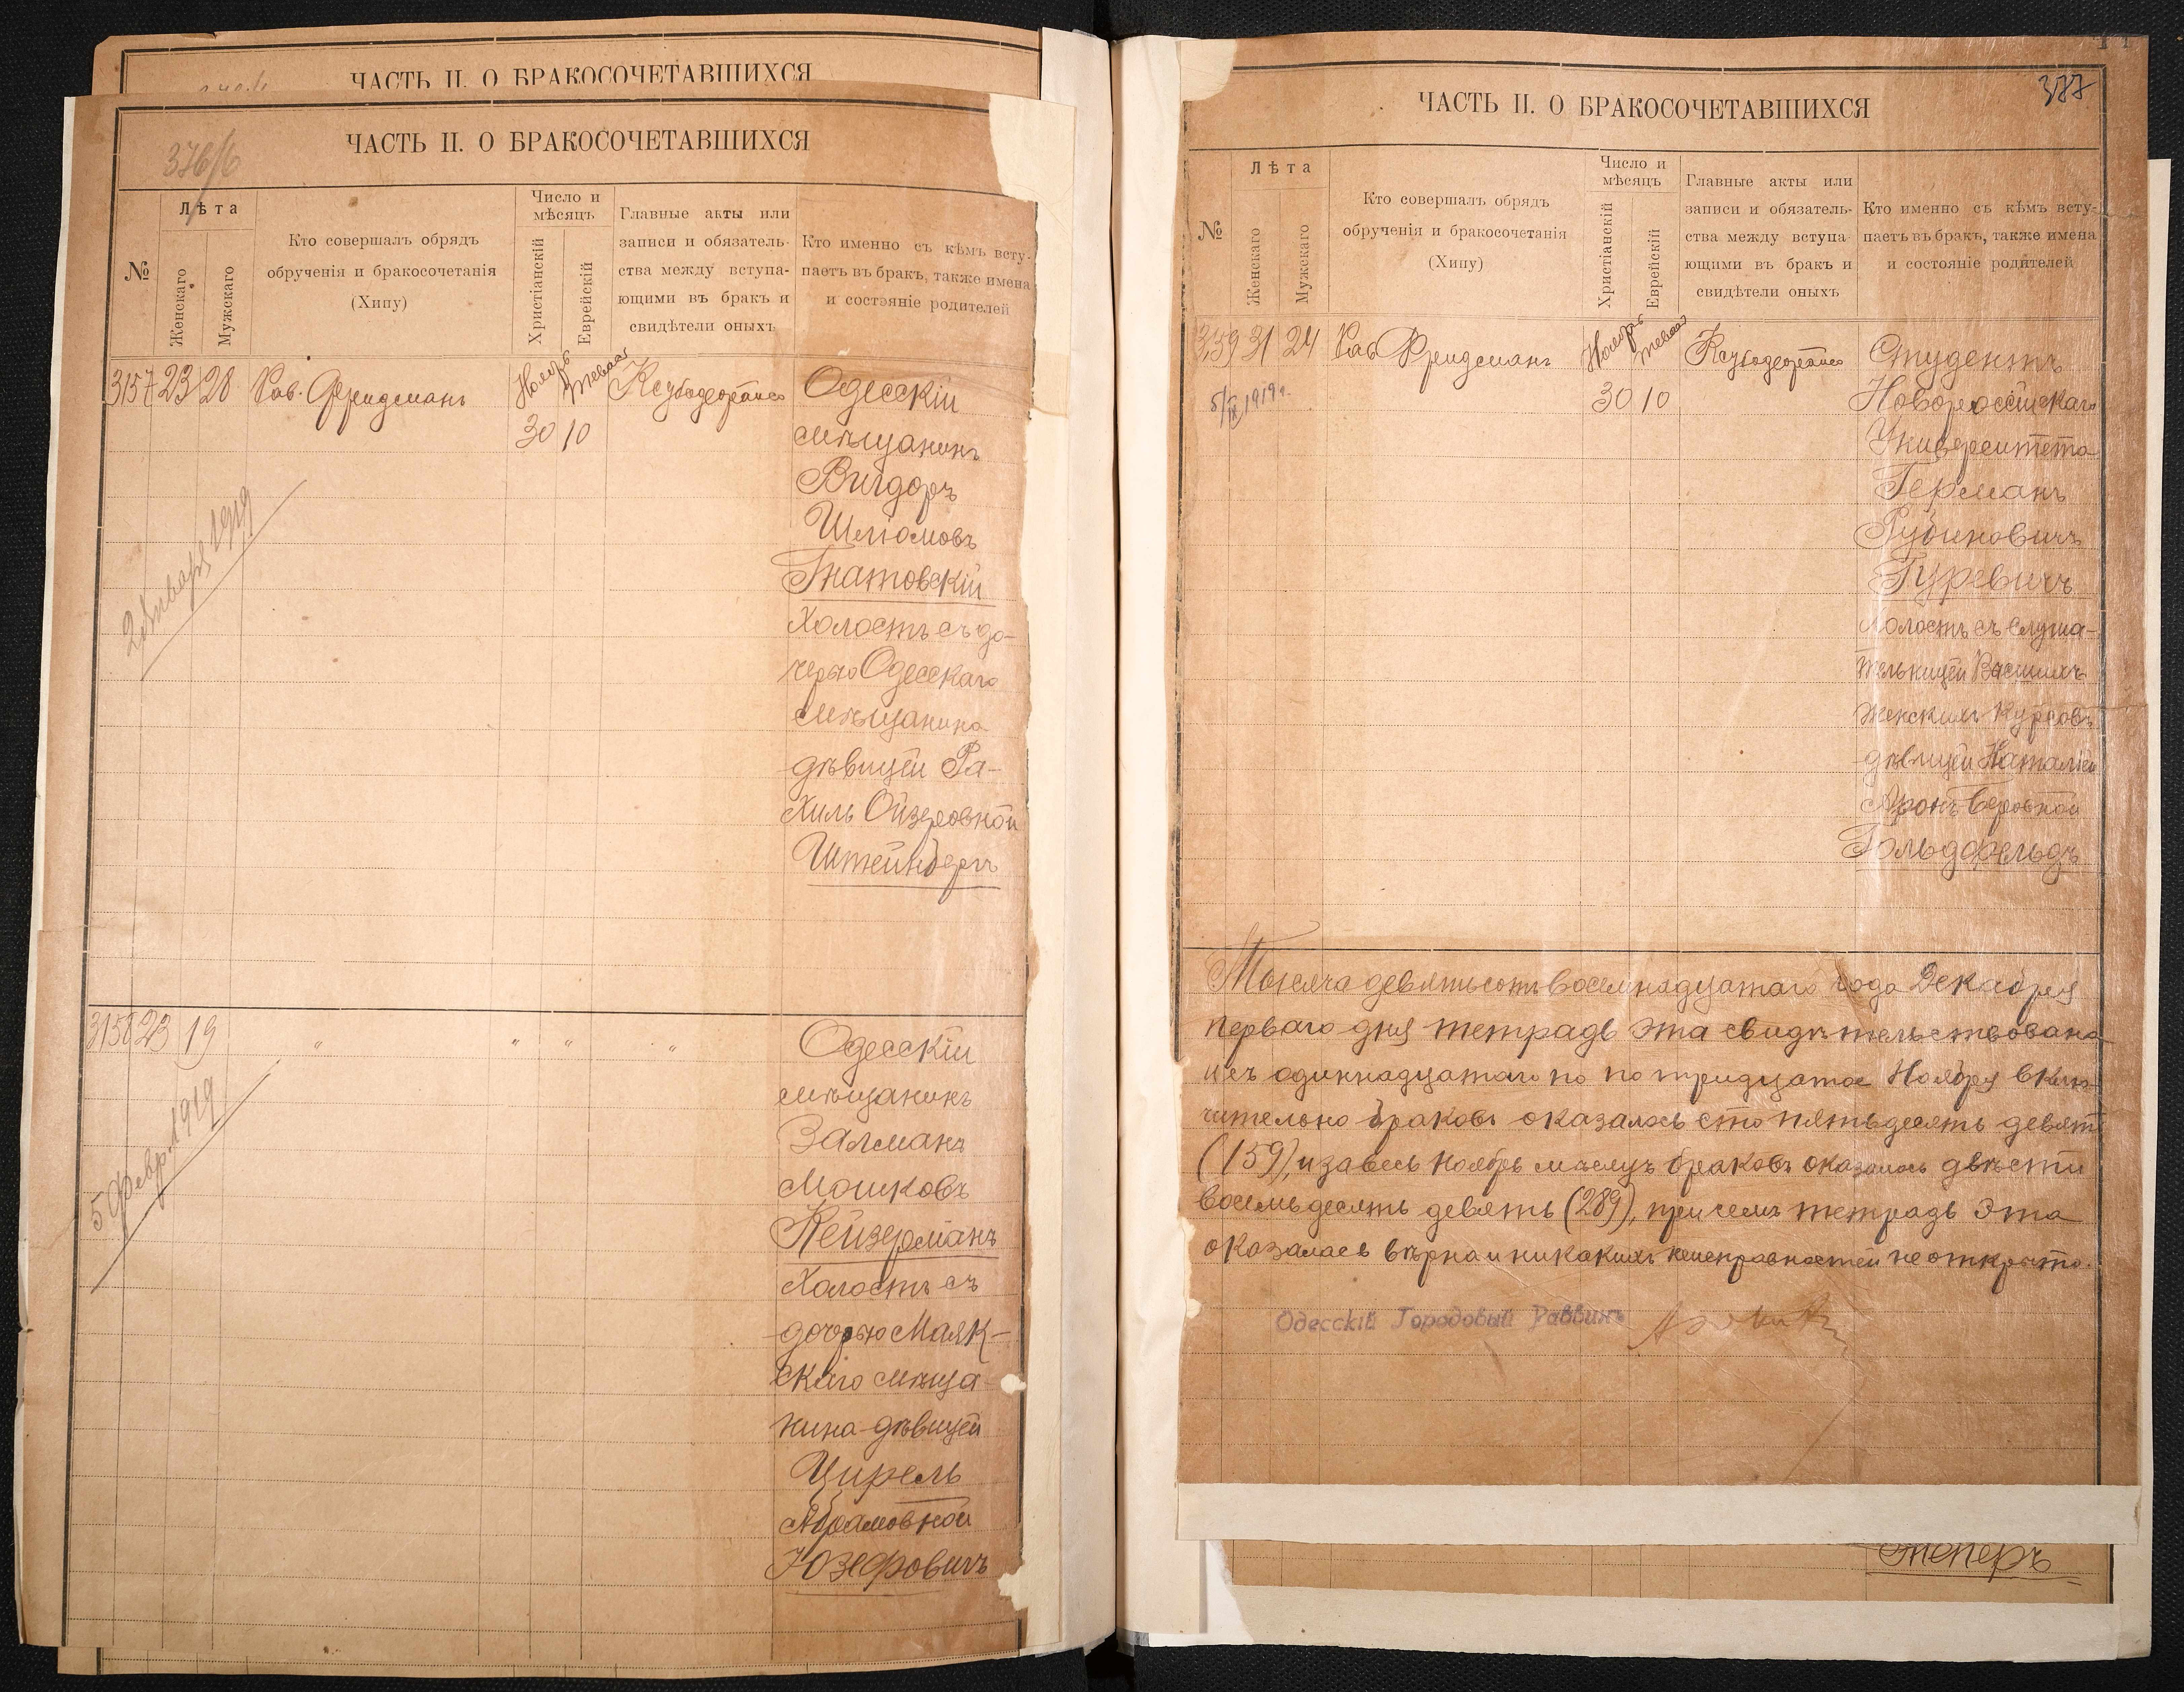 ЧАСТЬ II. О БРАКОСОЧЕТАВШИХСЯ
ЧАСТЬ II. О БРАКОСОЧЕТАВШИХСЯ
376/б
№
Лѣта
Женскаго
Мужскаго
Кто совершалъ обрядъ
обрученія и бракосочетанія
(Хипу)
Число и
мѣсяцъ
Христіанскій
Еврейскій
Главные акты или
записи и обязатель-
ства между вступа-
ющими въ бракъ и
свидѣтели оныхъ
Кто именно съ кѣмъ всту-
паетъ въ бракъ, также имена
и состояніе родителей
3157 23 28 Рав. Фридманъ Ноябрь Тевеѳ
30 10
Одесскій
мѣщанинъ
Вигдоръ
Шліомовъ
Гнатовскій
холостъ съ до-
черью Одесскаго
мѣщанина
дѣвицей Ра-
хиль Ойзеровной
Штейнбергъ
2 Января 1919
3158 23 19 " " " "
Одесскій
мѣщанинъ
Залманъ
Мошковъ
Кейзерманъ
холостъ съ
дочерью Маяк-
скаго мѣща-
нина дѣвицей
Цирель
Абрамовной
Юзефовичъ
5 февр. 1919
377
ЧАСТЬ II. О БРАКОСОЧЕТАВШИХСЯ
№
Лѣта
Женскаго
Мужскаго
Кто совершалъ обрядъ
обрученія и бракосочетанія
(Хипу)
Число и
мѣсяцъ
Христіанскій
Еврейскій
Главные акты или
записи и обязатель-
ства между вступа-
ющими въ бракъ и
свидѣтели оныхъ
Кто именно съ кѣмъ всту-
паетъ въ бракъ, также имена
и состояніе родителей
3159 31 24 Рав Фридманъ Ноябрь Тевеѳ
30 10
5/IX 1919 г.
Студентъ
Новороссійскаго
Университета
Германъ
Рубиновичъ
Гуревичъ
холостъ съ слуша-
тельницей Высшихъ
Женскихъ Курсовъ
дѣвицей Наталіей
Аронъ-Беровной
Гольдфельдъ
Тысяча девятьсотъ восемнадцатаго года Декабря
перваго дня тетрадь эта свидѣтельствована
и съ одиннадцатаго по по тридцатое Ноября вклю-
чительно браковъ оказалось сто пятьдесятъ девять
(159), и за весь ноябрь мѣсяцъ браковъ оказалось двѣсти
восемьдесятъ девять (289), при семъ тетрадь эта
оказалась вѣрна и никакихъ неисправностей не открыто.
Одесскій Городовый Раввинъ